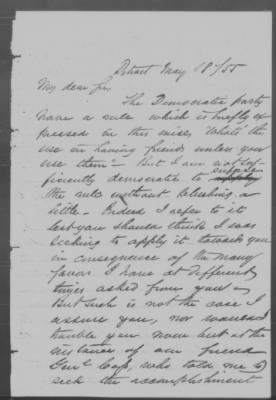 Detroit May 18/55
My dear Sir,
The Democratic party
have a rule which is briefly ex
pressed in this wise, "What's the
use in having friends unless you
use them"– But I am not suf-
ficiently democratic to enforce
the rule without blushing a
little – Indeed I refer to it
lest you should think I was
seeking to apply it towards you
in consequence of the many
favors I have at different
times asked from you –
But such is not the case I
assure you, nor would I
trouble you now but at the
instance of our friend
Genl Cass, who told me to
seek the accomplishment